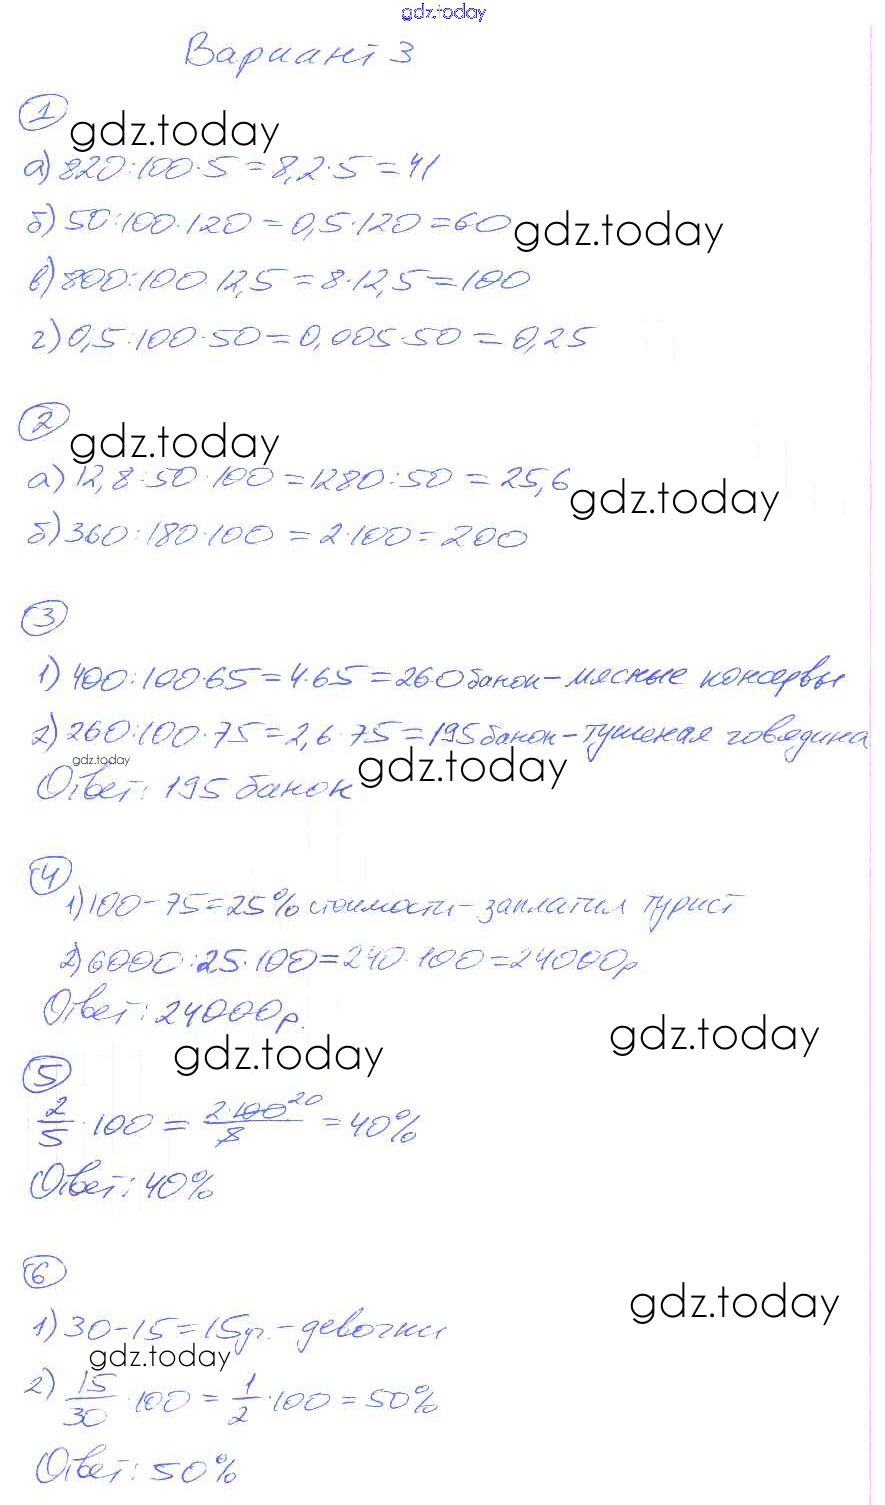 gdz.today
Вариант 3
1
gdz.today
а) 820:100·5=8,2·5=41
б) 50:100·120=0,5·120=60
gdz.today
в) 800:100·12,5=8·12,5=100
г) 0,5:100·50=0,005·50=0,25
2
gdz.today
а) 12,8:50·100=1280:50=25,6
gdz.today
б) 360:180·100=2·100=200
3
1) 400:100·65=4·65=260 банок-мясные консервы
2) 260:100·75=2,6·75=195 банок-тушеная говядина
gdz.today
gdz.today
Ответ: 195 банок
4
1) 100-75=25% стоимости-заплатил турист
2) 6000:25·100=240·100=24000р
Ответ: 24000р.
gdz.today
gdz.today
5
2/5·100=2·100 20/5=40%
Ответ: 40%
6
gdz.today
1) 30-15=15уч.-девочки
gdz.today
2) 15/30·100=1/2·100=50%
Ответ: 50%